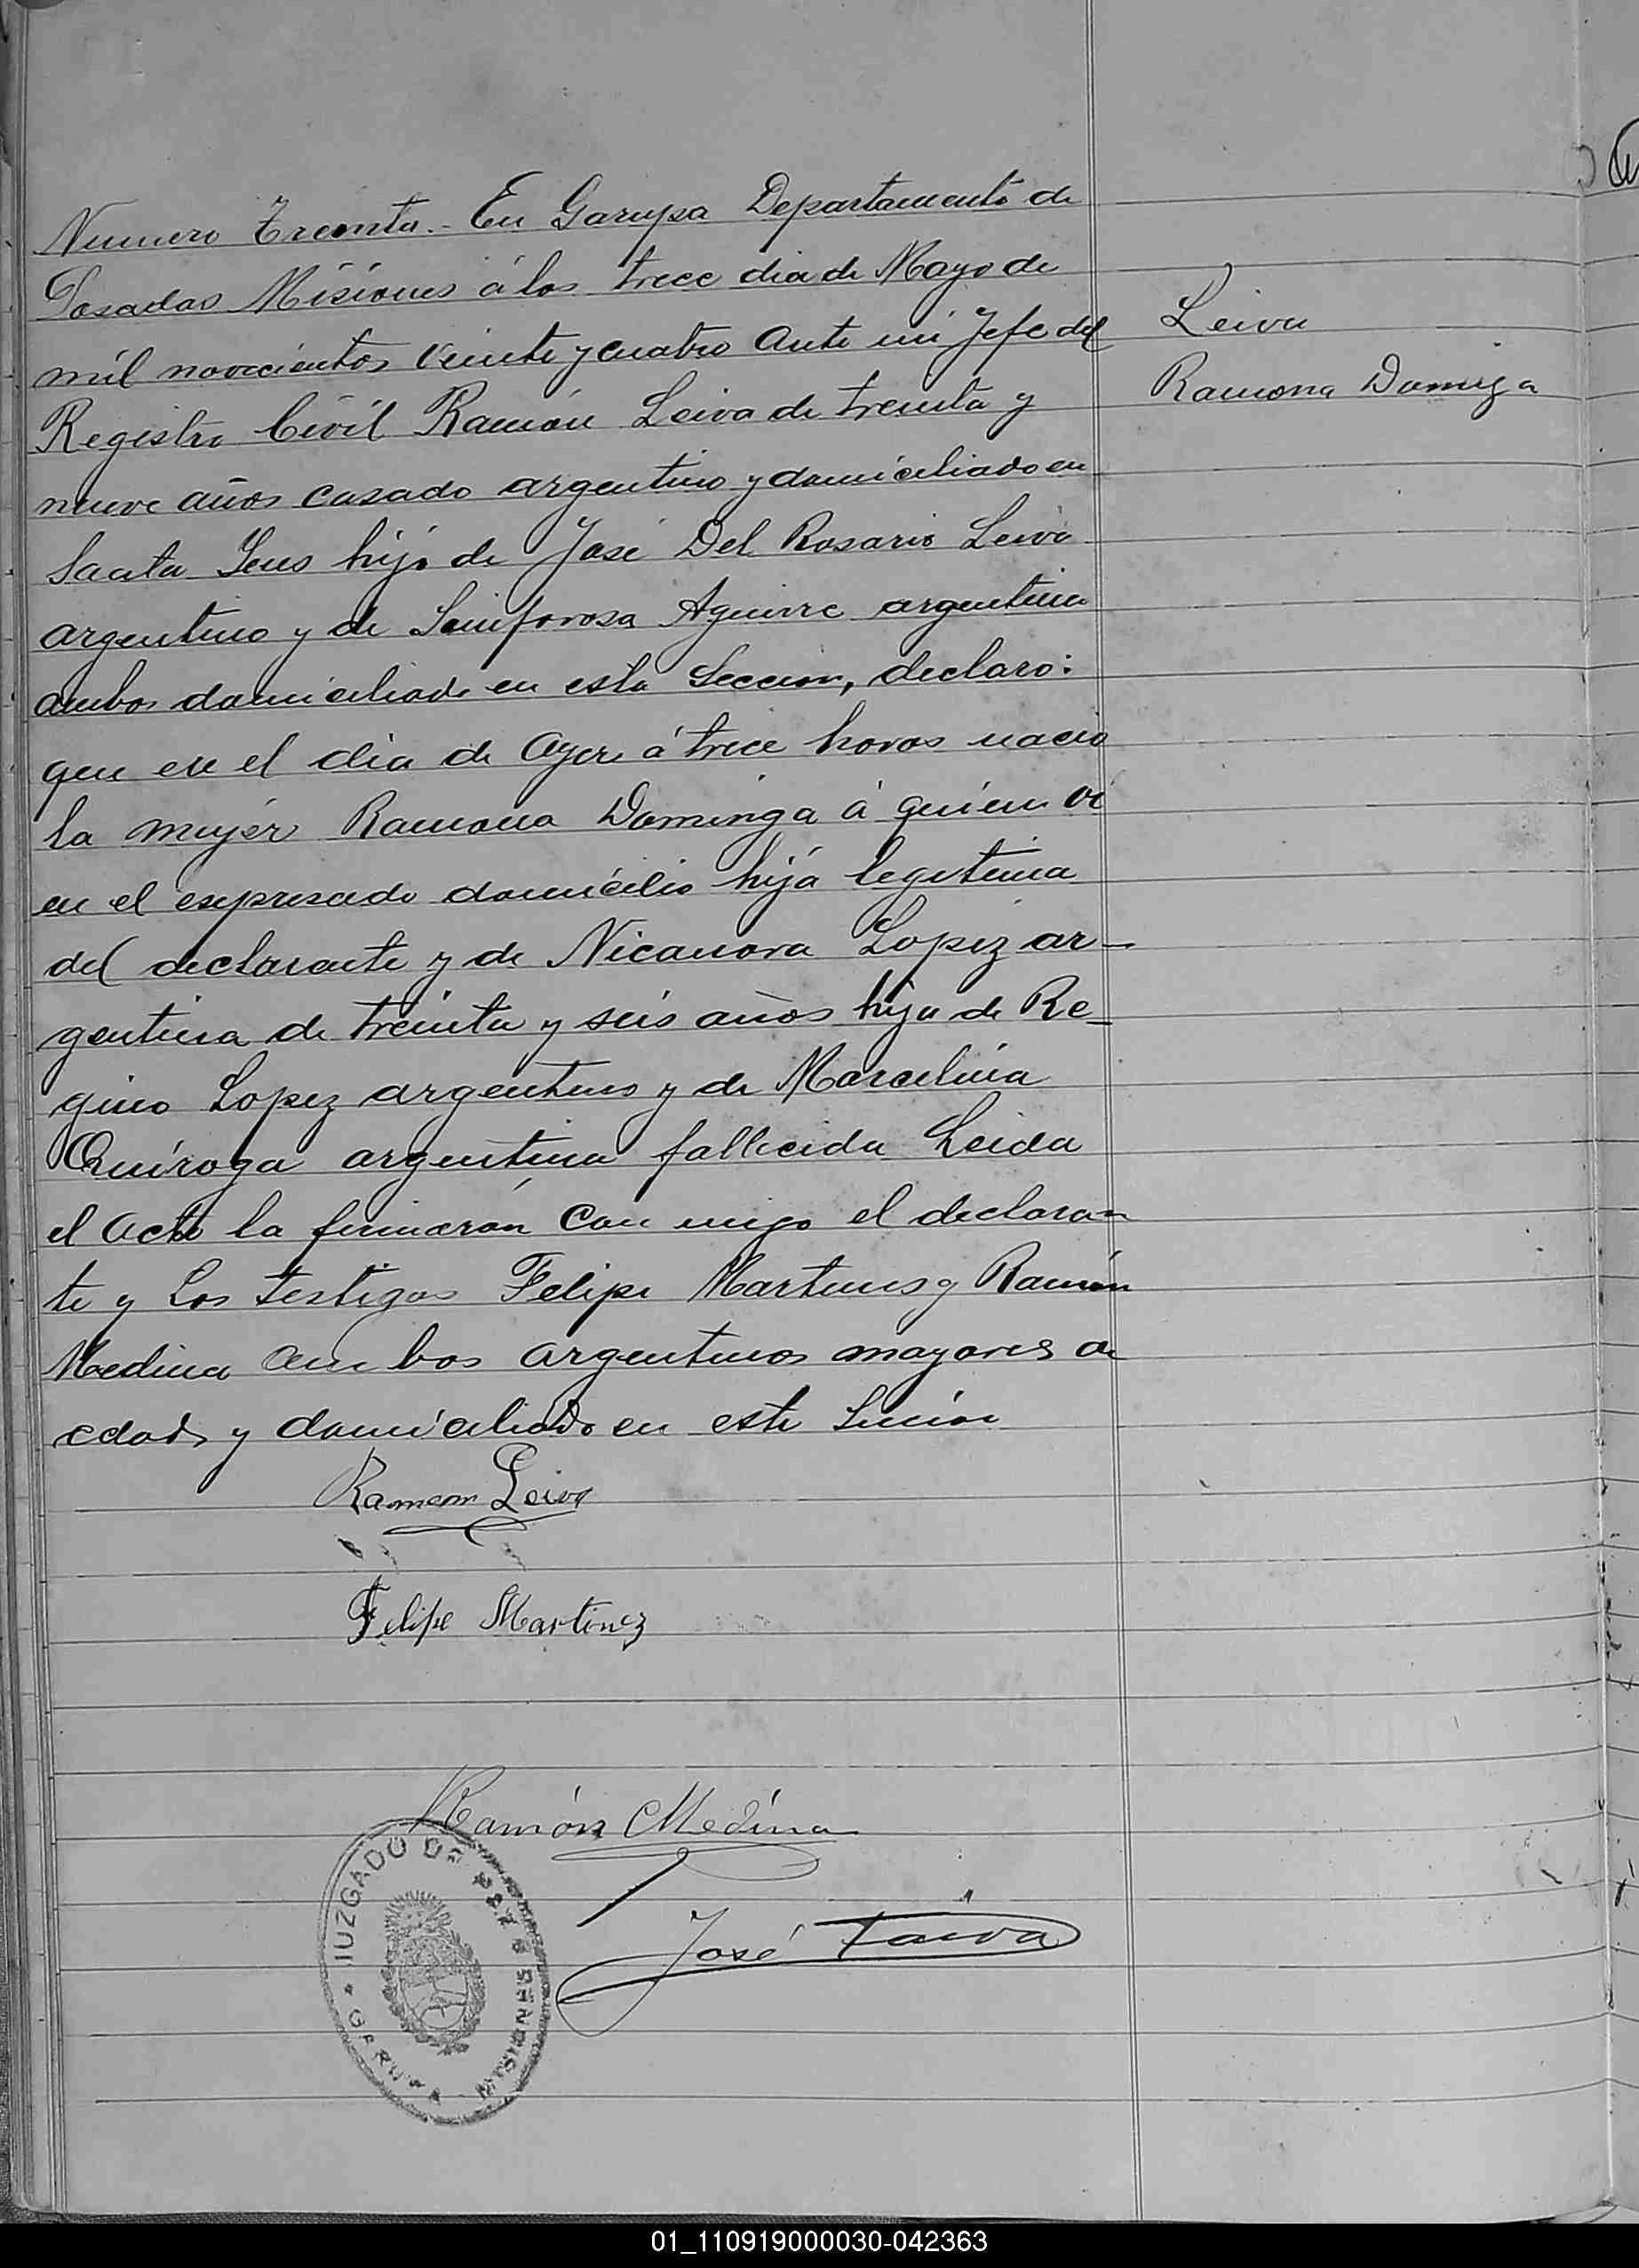 Numero Treinta.- En Garupa Departamento de
Posadas Misiones á los trece dia de Mayo de
mil novecientos veinte y cuatro ante mi Jefe del
Leiva
Registro Civil Ramón Leiva de treinta y
Ramona Dominga
nueve años casado argentino y domiciliado en
Santa hijo de José Del Rosario Leiva
argentino y de Sinforosa Aguirre argentina
ambos domiciliado en esta Seccion, declaro:
que en el dia de Ayer á trece horas nacio
la mujer Ramona Dominga á quien vi
en el expresado domicilio hija legitima
del declarante y de Nicanora Lopez ar-
gentina de treinta y seis años hija de Re-
gino Lopez argentino y de Marcelina
Quiroga argentina fallecida Leida
el Acta la firmarón con migo el declaran
te y Los testigos Felipe Martines y Ramón
Medina ambos argentinos mayores de
edad y domiciliado en esta
Ramon Leiva
Felipe Martinez
Ramón Medina
José Paiva
JUZGADO DE PAZ MISIONES GARUPA
01_110919000030-042363